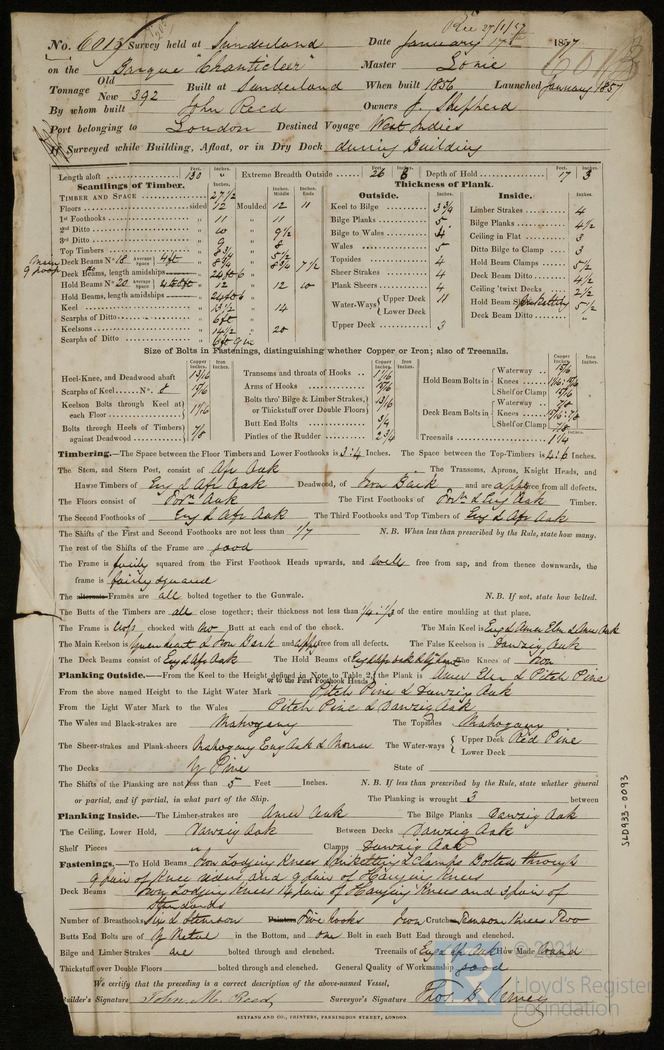 Rec 27/1/57
No. 6013 Survey held at Sunderland Date January 17th 1857
6013
on the Barque "Chanticleer" Master Lonie
Tonnage Old New 392 Built at Sunderland When built 1856 Launched January 1857
By whom built John Reed Owners J. Shepherd
Port belonging to London Destined Voyage West Indies
If Surveyed while Building, Afloat, or in Dry Dock during Building
Length aloft 130 " Extreme Breadth Outside 26 8 Depth of Hold 17 3
Scantlings of Timber. Thickness of Plank.
TIMBER AND SPACE 27 1/2 Outside. Inside.
Floors sided 12 Moulded 12 11 Keel to Bilge 3 3/4 Limber Strakes 4
1st Foothooks " 11 " 11 Bilge Planks 5 Bilge Planks 4 1/2
2nd Ditto " 10 " 9 1/2 Bilge to Wales 4 Ceiling in Flat 3
3rd Ditto " 9 " 8 Wales 5 Ditto Bilge to Clamp 3
Top Timbers " 8 3/4 " 5 1/2 Topsides 4 Hold Beam Clamps 5 1/2
Deck Beams No. 18 Average Space 4 ft " 8 3/4 " 8 3/4 7 1/2 Sheer Strakes 4 Deck Beam Ditto 4 1/2
Deck Beams, length amidships 24 ft 6 Plank Sheers 4 Ceiling 'twixt Decks 2 1/2
Hold Beams No. 20 Average Space " 12 " 12 10 Water-Ways Upper Deck 11 Lower Deck Hold Beam 5 1/2
Hold Beams, length amidships 24 ft 6 Deck Beam Ditto "
Keel " 13 1/2 " 14 Upper Deck 3
Scarphs of Ditto 6 ft
Keelsons " 14 1/2 " 20
Scarphs of Ditto 6 ft 9 in
Size of Bolts in Fastenings, distinguishing whether Copper or Iron; also of Treenails.
Heel-Knee, and Deadwood abaft 13/16 Transoms and throats of Hooks 1 1/16 Hold Beam Bolts in Waterway
Scarphs of Keel No. 8 Arms of Hooks Knees
Keelson Bolts through Keel at each Floor Bolts thro' Bilge & Limber Strakes, or Thickstuff over Double Floors 13/16 Shelf or Clamp
Bolts through Heels of Timbers against Deadwood 7/8 Butt End Bolts 3/4 Deck Beam Bolts in Waterway 7/8 Knees Shelf or Clamp 7/8
Pintles of the Rudder 2 3/4 Treenails 1 1/4 inches.
Timbering.—The Space between the Floor Timbers and Lower Foothooks is 3:4 Inches. The Space between the Top-Timbers is 4:6 Inches.
The Stem, and Stern Post, consist of Afr Oak The Transoms, Aprons, Knight Heads, and
Hawse Timbers of Eng & Afr Oak Deadwood, of Iron Bark and are appy free from all defects.
The Floors consist of Forn Oak The First Foothooks of Forn & Eng Oak Timber.
The Second Foothooks of Eng & Afr Oak The Third Foothooks and Top Timbers of Eng & Afr Oak
The Shifts of the First and Second Foothooks are not less than 1/7 N.B. When less than prescribed by the Rule, state how many.
The rest of the Shifts of the Frame are good
The Frame is fairly squared from the First Foothook Heads upwards, and well free from sap, and from thence downwards, the
frame is fairly squared
The alternate Frames are all bolted together to the Gunwale. N.B. If not, state how bolted.
The Butts of the Timbers are all close together; their thickness not less than 1/4 : 1/3 of the entire moulding at that place.
The Frame is Cross chocked with two Butt at each end of the chock. The Main Keel is Eng & Amer Elm & Amer Oak
The Main Keelson is Green heart & Iron Bark and appy free from all defects. The False Keelson is Danzig Oak
The Deck Beams consist of Eng & Afr Oak The Hold Beams of Eng & Afr Oak The Knees of Iron
Planking Outside.—From the Keel to the Height defined in Note to Table 2, or to the First Foothook Heads the Plank is Amer Elm & Pitch Pine
From the above named Height to the Light Water Mark Pitch Pine & Danzig Oak
From the Light Water Mark to the Wales Pitch Pine & Danzig Oak
The Wales and Black-strakes are Mahogany The Topsides Mahogany
The Sheer-strakes and Plank-sheers Mahogany Eng Oak & Morra The Water-ways Upper Deck Red Pine Lower Deck
The Decks Y Pine State of
The Shifts of the Planking are not less than 5 Feet Inches. N.B. If less than prescribed by the Rule, state whether general
or partial, and if partial, in what part of the Ship. The Planking is wrought 3 between
Planking Inside.—The Limber-strakes are Amer Oak The Bilge Planks Danzig Oak
The Ceiling, Lower Hold, Danzig Oak Between Decks Danzig Oak
Shelf Pieces " Clamps Danzig Oak
Fastenings.—To Hold Beams Iron Lodging Knees & Clamps Bolted through
9 pair of Knee riders and 9 pair of Hanging Knees
Deck Beams Iron Lodging Knees 14 pair of Hanging Knees and 3 pair of
Standards
Number of Breasthooks Six & Stemson Pointers Five hooks Iron Crutches Transom Knees Two
Butts End Bolts are of Y Metal in the Bottom, and one Bolt in each Butt End through and clenched.
Bilge and Limber Strakes are bolted through and clenched. Treenails of Eng & Af Oak How Made Hand
Thickstuff over Double Floors bolted through and clenched. General Quality of Workmanship good
We certify that the preceding is a correct description of the above-named Vessel,
Builder's Signature John M. Reed Surveyor's Signature
SEYFANG AND CO., PRINTERS, FARRINGDON STREET, LONDON.
SLD933-0093
© 2021
Lloyd's Register
Foundation